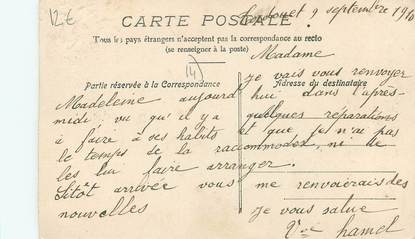 12€
CARTE POSTALE
9 septembre 1910
Tous les pays étrangers n'acceptent pas la correspondance au recto
(se renseigner à la poste)
14
Madame
Partie réservée à la Correspondance
Adresse du destinataire
je vais vous renvoyer
Madeleine aujourd'hui dans l'après-
midi, vu qu'il y a quelques réparations
à faire à ses habits et que je n'ai pas
le temps de la raccommoder, ni de
les lui faire arranger.
Sitôt arrivée vous me renvoiriez des
nouvelles
Je vous salue
Vve hamel